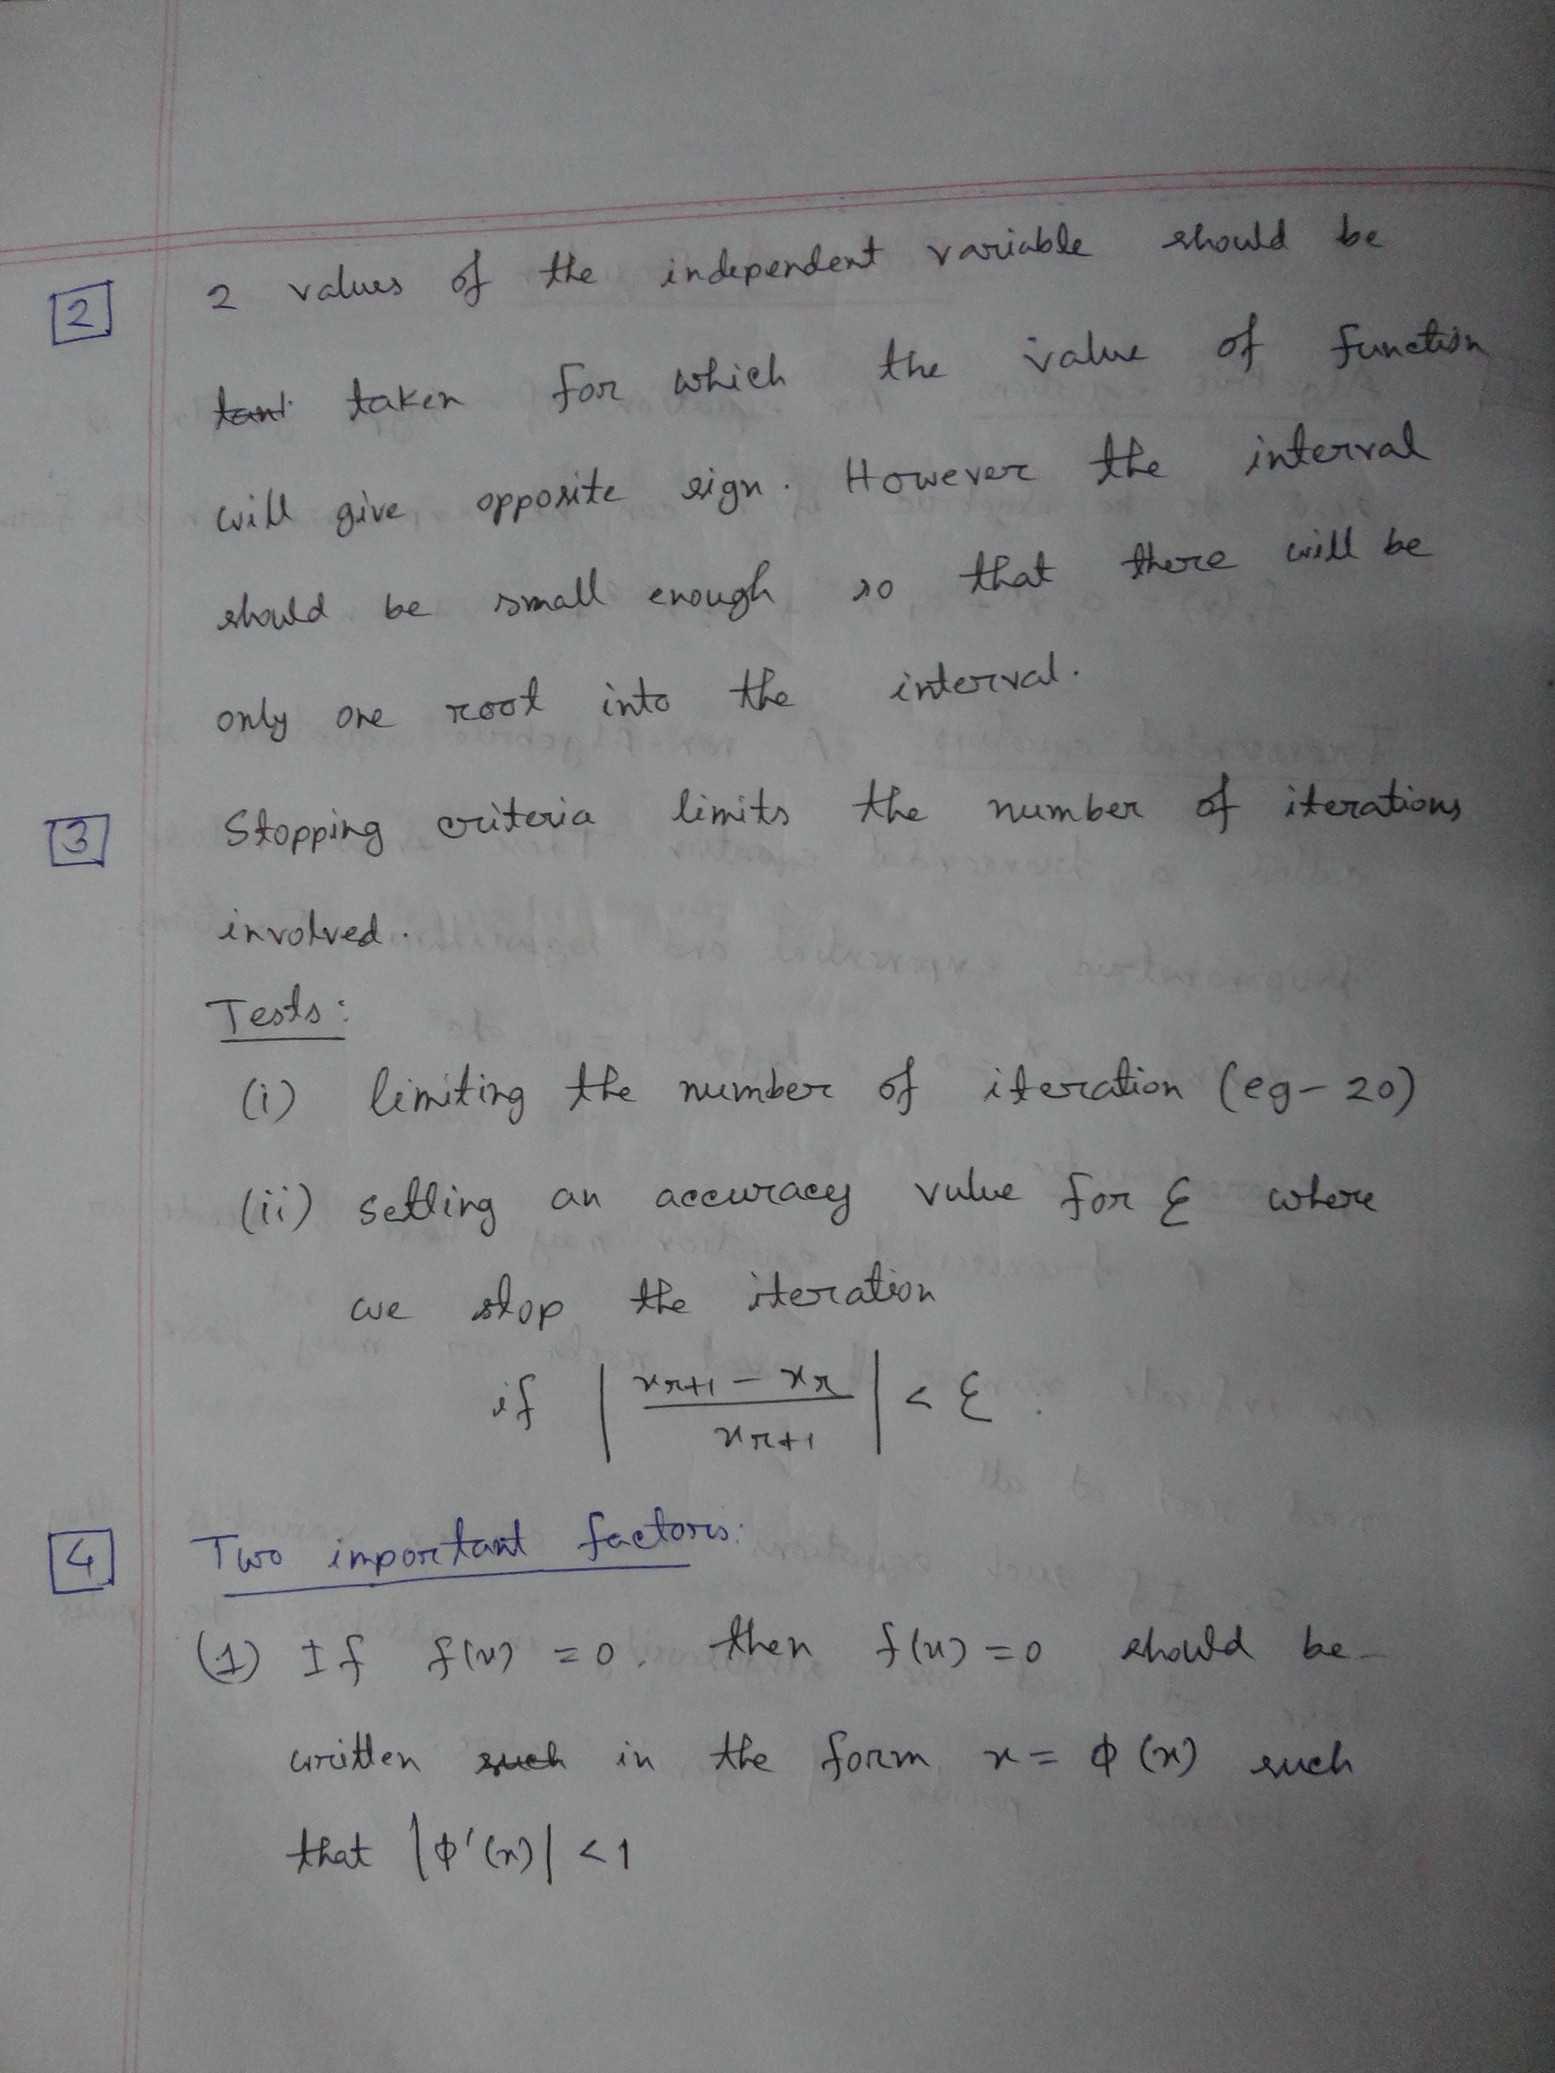 2 2 values of the independent variable should be
tant taken for which the value of function
will give opposite sign. However the interval
should be small enough so that there will be
only one root into the interval.
3 Stopping criteria limits the number of iterations
involved.
Tests:
(i) limiting the number of iteration (eg- 20)
(ii) setting an accuracy value for ε where
we stop the iteration
if | (xr+1 - xr) / xr+1 | < ε.
4 Two important factors:
(1) If f(x) = 0. then f(x) = 0 should be
written such in the form x = φ(x) such
that |φ'(x)| < 1